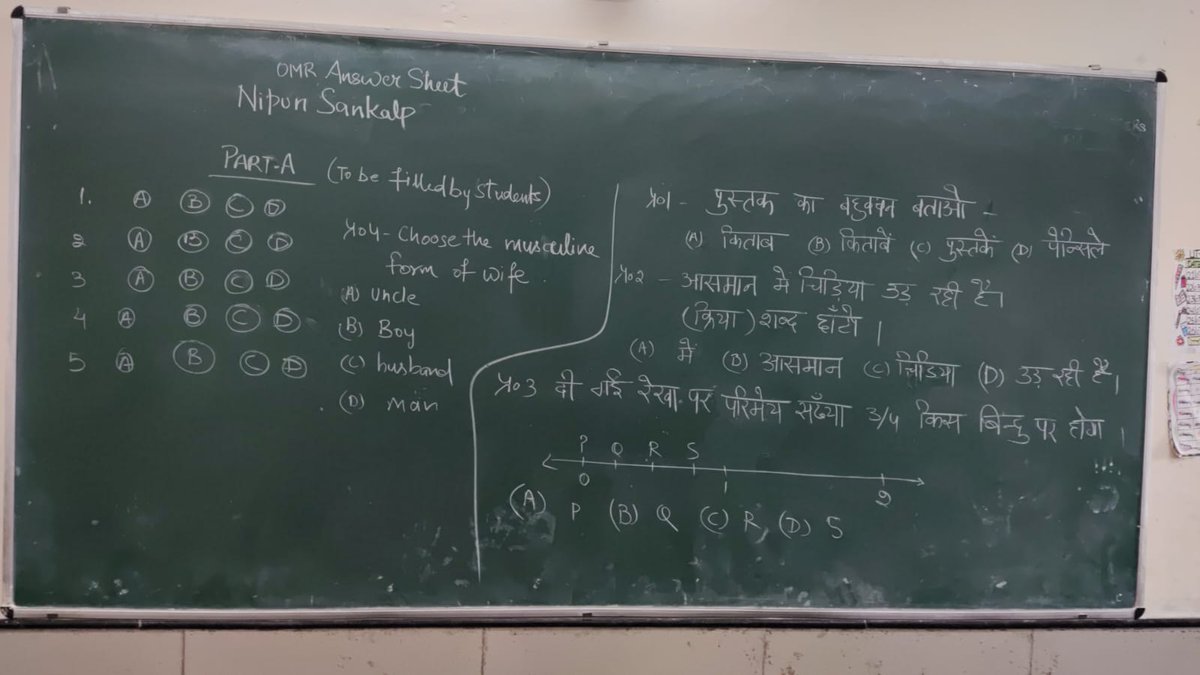 OMR Answer Sheet
Nipun Sankalp
PART-A (To be filled by students)
1. A B C D
2 A B C D
3 A B C D
4 A B C D
5 A B C D
प्र04- Choose the musculine
form of wife.
(A) Uncle
(B) Boy
(C) husband
(D) man
प्र01- पुस्तक का बहुवचन बताओ -
(A) किताब (B) किताबें (C) पुस्तकें (D) पैन्सिले
प्र02 - आसमान मे चिड़िया उड़ रही है।
(क्रिया) शब्द छाँटो।
(A) में (B) आसमान (C) चिडिया (D) उड़ रही है।
प्र03 दी गई रेखा पर परिमेय सँख्या 3/4 किस बिन्दु पर होग।
P Q R S
0 1 2
(A) P (B) Q (C) R (D) S